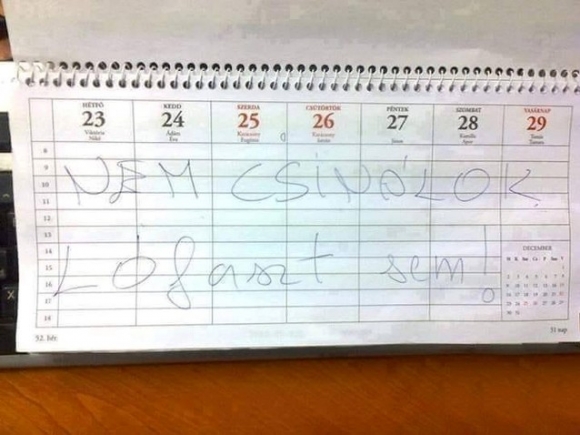 HÉTFŐ KEDD SZERDA CSÜTÖRTÖK PÉNTEK SZOMBAT VASÁRNAP
23 24 25 26 27 28 29
Viktória Ádám Karácsony Karácsony János Kamilla Tamás
Niké Éva Eugénia István Apor Tamara
8
9
10
11
12
13
14
15
16
17
18
NEM CSINÁLOK
LÓfaszt sem!
DECEMBER
52. hét
31 nap